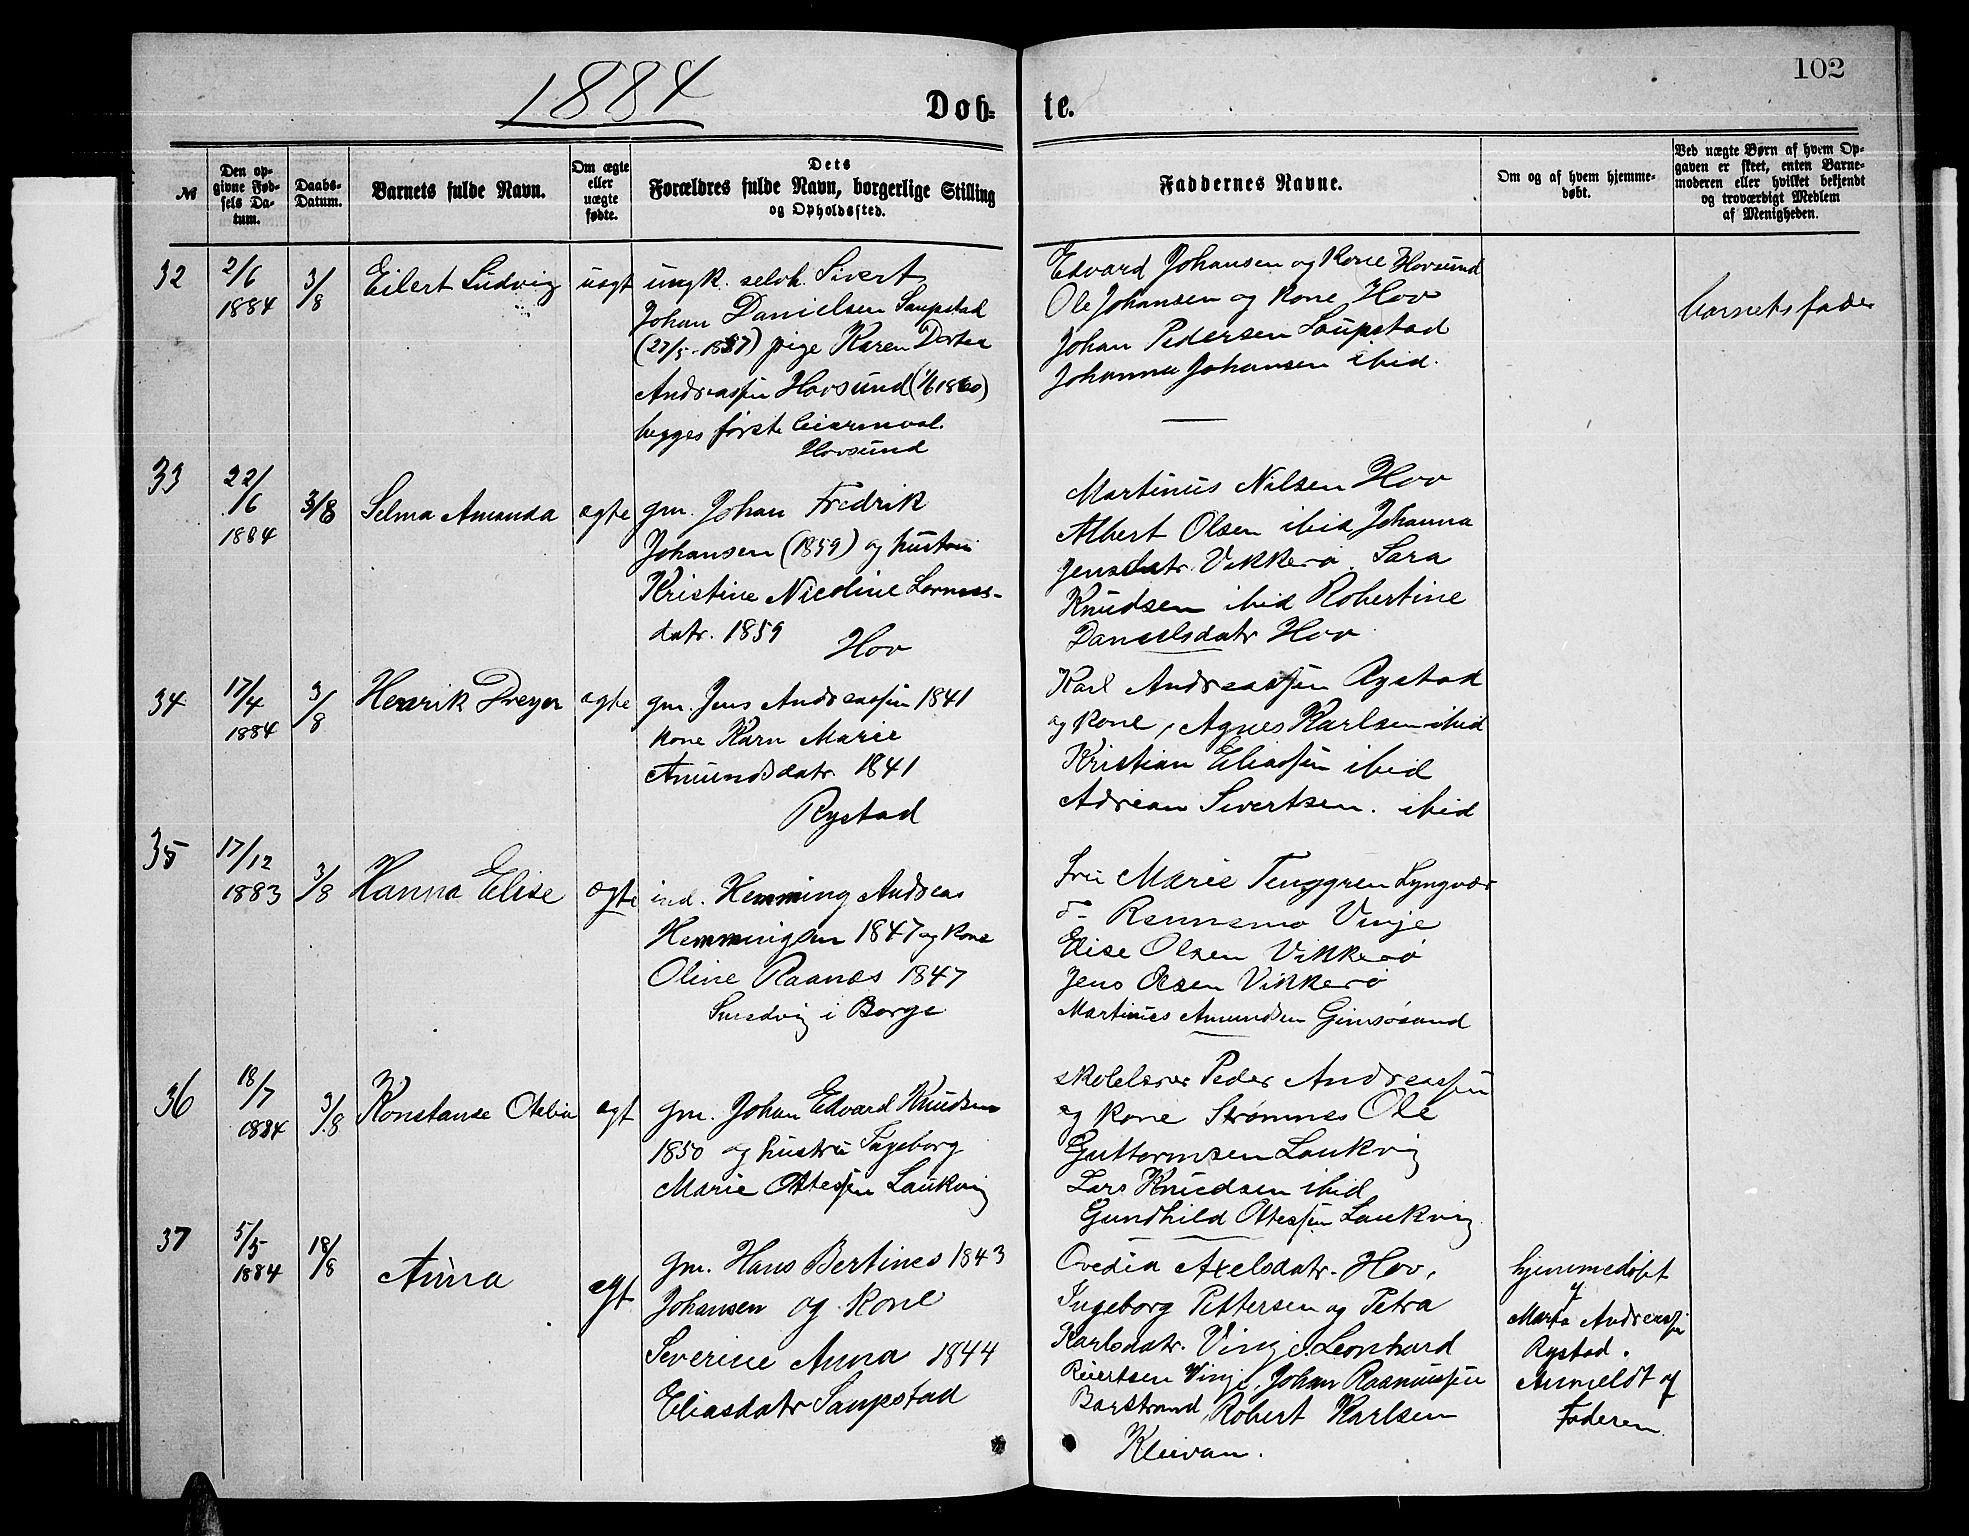 102
1884
Døb- te.
№
Den op-
givne Fød-
sels Da-
tum.
Daabs-
Datum.
Barnets fulde Navn.
Om ægte
eller
uægte
fødte.
Dets
Forældres fulde Navn, borgerlige Stilling
og Opholdssted.
Faddernes Navne.
Om og af hvem hjemme-
døbt.
Ved uægte Børn af hvem Op-
gaven er skeet, enten Barne-
moderen eller hvilket bekjendt
og troværdigt Medlem
af Menigheden.
32
2/6
1884
3/8
Eilert Ludvig
uægt
ungk. selvh. Sivert
Johan Danielsen Saupstad
(27/5-1857) pige Karen Dortea
Andreassen Hovsund (1/6 1860)
begges første leiermaal.
Hovsund
Edvard Johansen og Kone Hovsund
Ole Johansen og Kone Hov
Johan Pedersen Saupstad
Johanna Johansen ibid.
barnets fader
33
22/6
1884
3/8
Selma Amanda
ægte
gm. Johan Fredrik
Johansen (1859) og hustru
Kristine Nicoline
datr. 1859
Hov
Martinus Nilsen Hov
Albert Olsen ibid Johanna
Jensdatr. Vikkerø. Sara
Knudsen ibid Robertine
Danielsdatr Hov
34
17/4
1884
3/8
Henrik Dreyer
ægte
gm. Jens Andreassen 1841
kone Karn Marie
Amundsdatr. 1841
Rystad
Karl Andreassen Rystad
og kone, Agnes Karlsen ibid
Kristian Eliassen ibid
Adrian Sivertsen. ibid
35
17/12
1883
3/8
Hanna Elise
ægte
ind. Hemming Andreas
Hemmingsen 1847 og kone
Oline Raanes 1847
Smedvig i Borge
Fru Marie Tenggren Lyngvær
Rennemo Vinje
Elise Olsen Vikkerø
Jens Olsen Vikkerø
Martinus Amundsen Gimsøsand
36
18/7
1884
3/8
Konstanse Otelia
ægt
gm. Johan Edvard Knudsen
1850 og hustru Ingeborg
Marie Ottessen Laukvig
skolelærer Peder Andreassen
og kone Strømnes Ole
Guttormsen Laukvig
Lars Knudsen ibid
Gundhild Ottessen Laukvig
37
5/5
1884
18/8
Anna
ægt
gm. Hans Bertines 1843
Johansen og kone
Severine Anna 1844
Eliasdatr Saupstad
Ovedia Axelsdatr. Hov,
Ingeborg Pettersen og Petra
Karlsdatr. Vinje. Leonhard
Reiertsen Vinje, Johan Rasmussen
Barstrand, Robert Karlsen
Kleivan.
hjemmedøbt
af
Marta Andreassen
Rystad.
Anmeldt af
Faderen